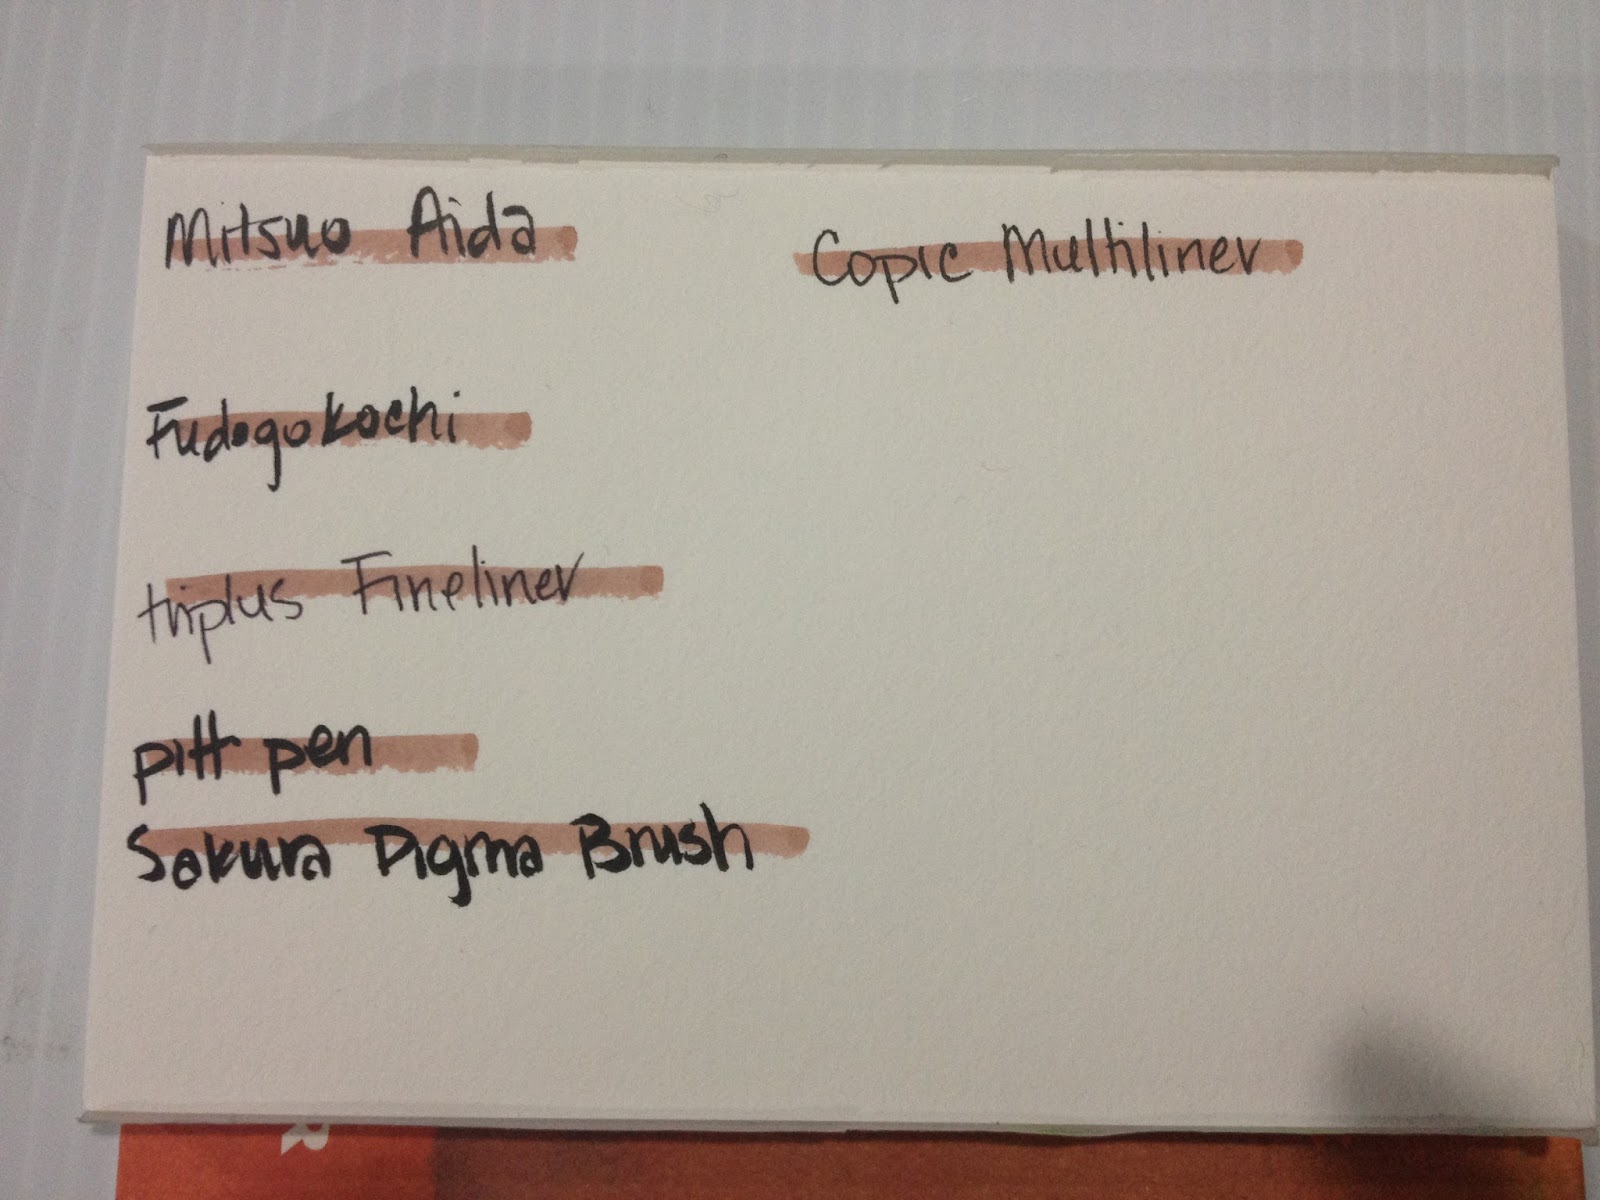 Mitsuo Aida
Copic Multiliner
Fudegokochi
triplus Fineliner
pitt pen
Sakura Pigma Brush
R